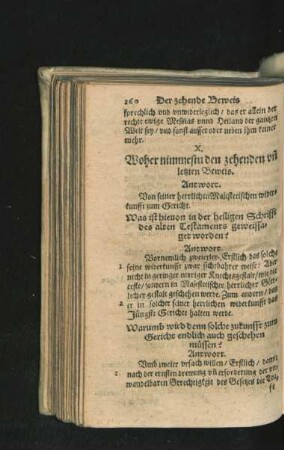 260 Der zehende Beweis
sprechlich vnd vnwiderleglich / das er allein der
rechte ewige Messias vnnd Heiland der gantzen
Welt sey / vnd sonst ausser oder neben ihm keiner
mehr.
X.
Woher nimmestu den zehenden vñ
letzten Beweis.
Antwort.
Von seiner herrlichen Maiestetischen wider-
kunfft zum Gericht.
Was ist hieuon in der heiligen Schrifft
des alten Testaments geweissa-
get worden?
Antwort.
Vornemlich zweierley. Erstlich das solche
1. seine widerkunfft zwar sichtbahrer weise / Aber
nicht in geringer nidriger Knechtsgestalt / wie die
erste / sondern in Maiestetischer herrlicher Gött-
licher gestalt geschehen werde. Zum andern / das
2. er in solcher seiner herrlichen widerkunfft das
Jüngste Gericht halten werde.
Warumb wird denn solche zukunfft zum
Gericht endlich auch geschehen
müssen?
Antwort.
Vmb zweier vrsach willen / Erstlich / denn
1. nach der ernsten drewung vñ erforderung der vn-
wandelbaren Gerechtigkeit des Gesetzes der